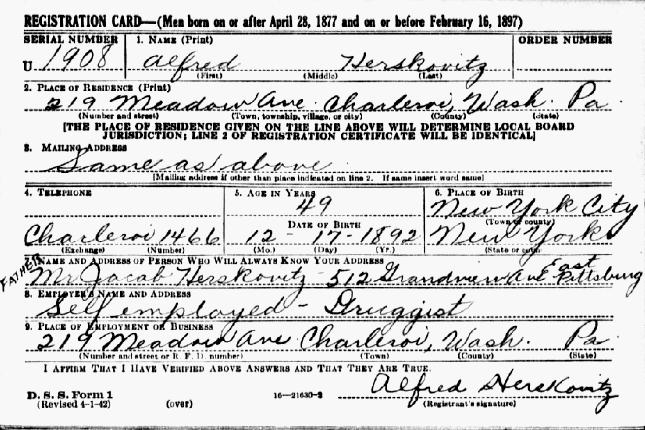 REGISTRATION CARD—(Men born on or after April 28, 1877 and on or before February 16, 1897)
SERIAL NUMBER 1. NAME (Print) ORDER NUMBER
U 1908 Alfred Herskovitz
(First) (Middle) (Last)
2. PLACE OF RESIDENCE (Print)
219 Meadow Ave. Charleroi, Wash. Pa.
(Number and street) (Town, township, village, or city) (County) (State)
[THE PLACE OF RESIDENCE GIVEN ON THE LINE ABOVE WILL DETERMINE LOCAL BOARD
JURISDICTION; LINE 2 OF REGISTRATION CERTIFICATE WILL BE IDENTICAL]
3. MAILING ADDRESS
Same as above.
[Mailing address if other than place indicated on line 2. If same insert word same]
4. TELEPHONE 5. AGE IN YEARS 6. PLACE OF BIRTH
49 New York City
DATE OF BIRTH (Town or county)
Charleroi 1466 12 - 17 - 1892 New York
(Exchange) (Number) (Mo.) (Day) (Yr.) (State or country)
7. NAME AND ADDRESS OF PERSON WHO WILL ALWAYS KNOW YOUR ADDRESS
FATHER Mr. Jacob Herskovitz - 512 Grandview Ave East Pittsburg
8. EMPLOYER'S NAME AND ADDRESS
Self employed - Druggist
9. PLACE OF EMPLOYMENT OR BUSINESS
219 Meadow Ave Charleroi, Wash. Pa.
(Number and street or R. F. D. number) (Town) (County) (State)
I AFFIRM THAT I HAVE VERIFIED ABOVE ANSWERS AND THAT THEY ARE TRUE.
Alfred Herskovitz
D. S. S. Form 1
(Revised 4-1-42) (over) 16—21630-2 (Registrant's signature)